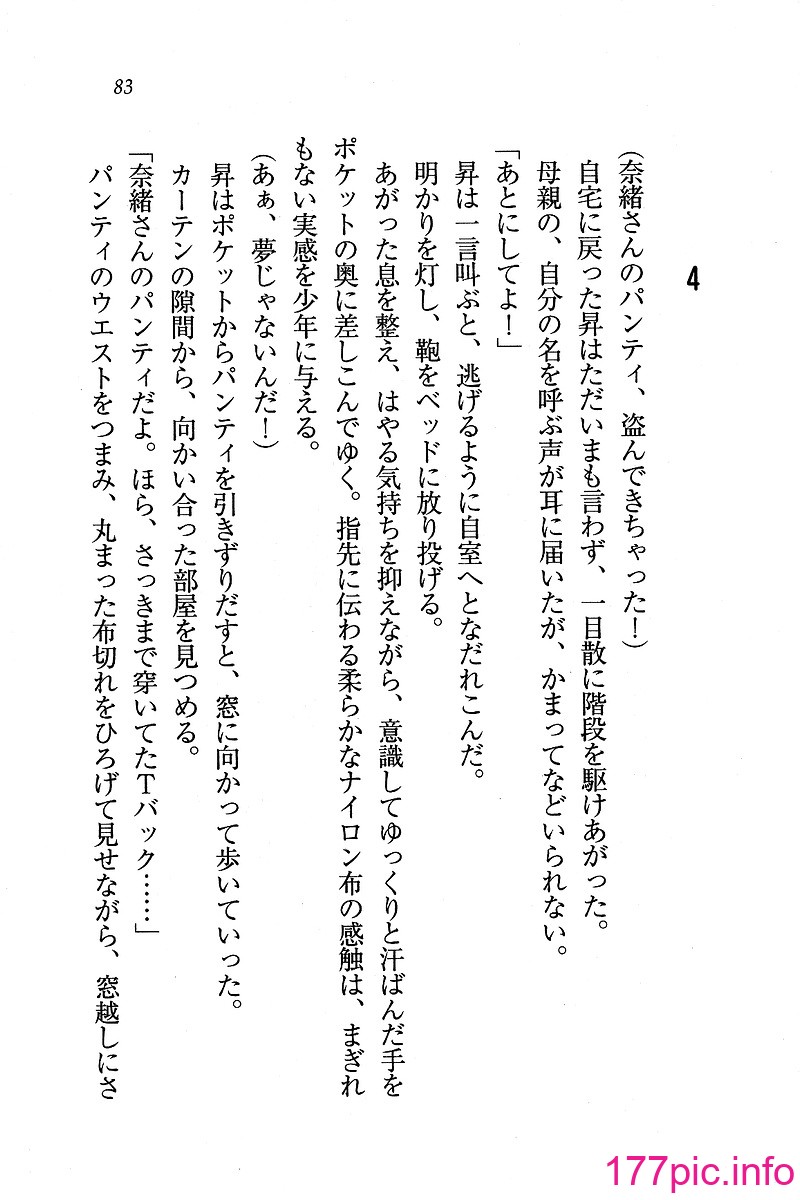 83
4
(奈緒さんのパンティ、盗んできちゃった!)
自宅に戻った昇はただいまも言わず、一目散に階段を駆けあがった。
母親の、自分の名を呼ぶ声が耳に届いたが、かまってなどいられない。
「あとにしてよ!」
昇は一言叫ぶと、逃げるように自室へとなだれこんだ。
明かりを灯し、鞄をベッドに放り投げる。
あがった息を整え、はやる気持ちを抑えながら、意識してゆっくりと汗ばんだ手を
ポケットの奥に差しこんでゆく。指先に伝わる柔らかなナイロン布の感触は、まぎれ
もない実感を少年に与える。
(あぁ、夢じゃないんだ!)
昇はポケットからパンティを引きずりだすと、窓に向かって歩いていった。
カーテンの隙間から、向かい合った部屋を見つめる。
「奈緒さんのパンティだよ。ほら、さっきまで穿いてたTバック……」
パンティのウエストをつまみ、丸まった布切れをひろげて見せながら、窓越しにさ
177pic.info